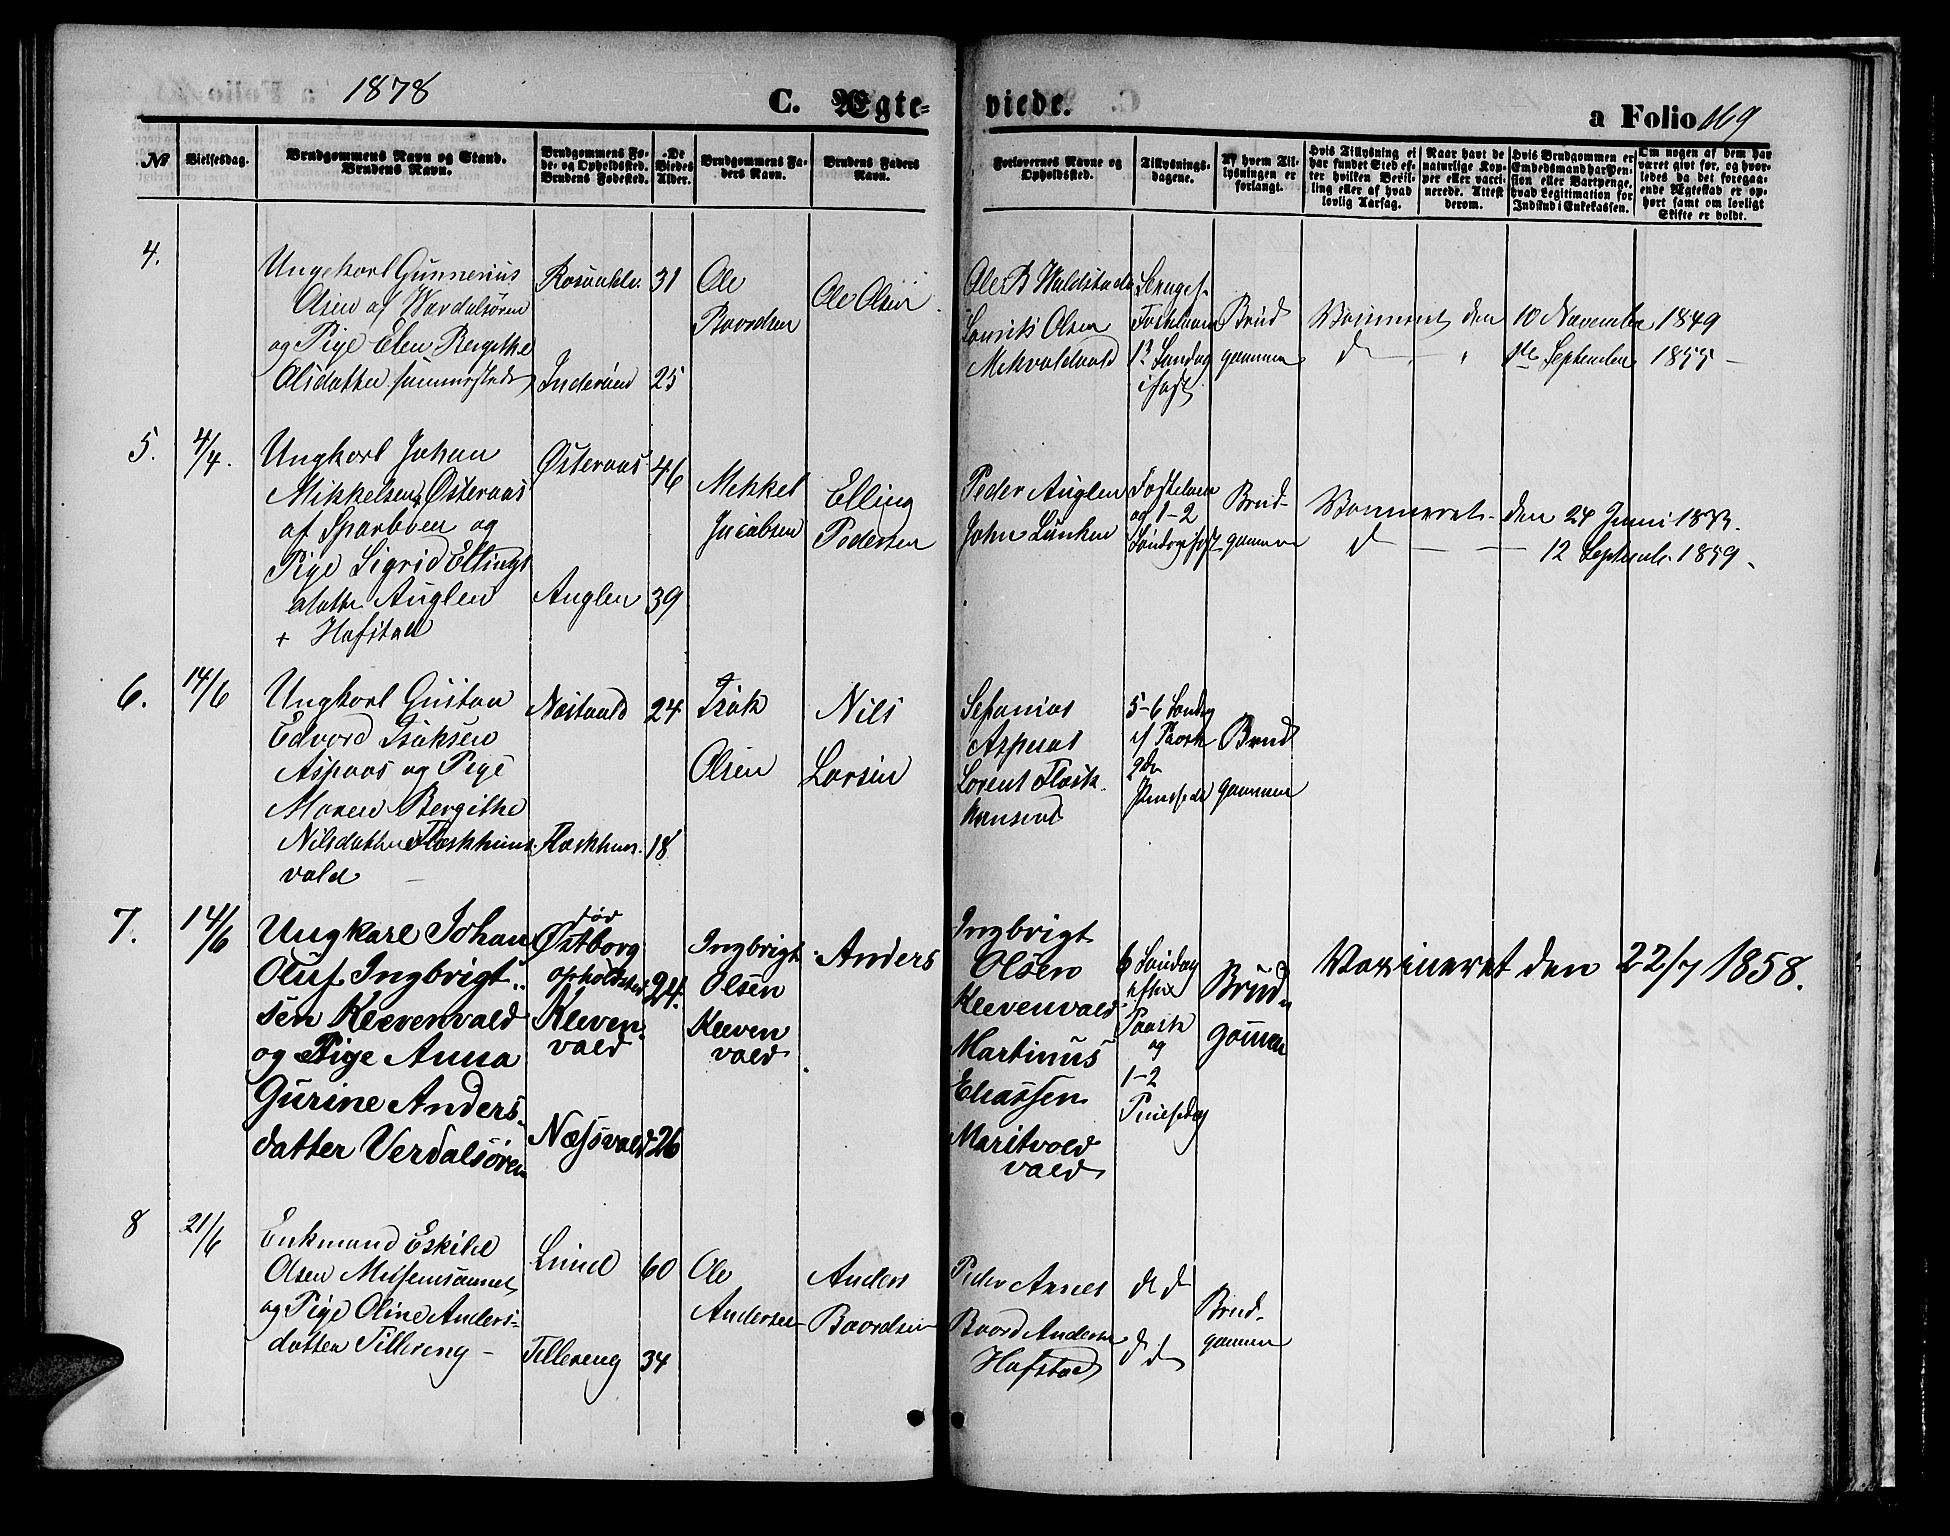 1878
C. Ægte-
viede.
a Folio 169
No
Vielsesdag.
Brudgommens Navn og Stand.
Brudens Navn.
Brudgommens Fø-
de- og Opholdssted.
Brudens Fødested.
De
Viedes
Alder.
Brudgommens Fa-
ders Navn.
Brudens Faders
Navn.
Forlovernes Navne og
Opholdssted.
Tillysnings-
dagene.
Af hvem Til-
lysningen er
forlangt.
Hvis Tillysning ei
har fundet Sted ef-
ter hvilken Bevil-
ling eller af hvad
lovlig Aarsag.
Naar havt de
naturlige Kop-
per eller vacci-
nerede. Attest
derom.
Hvis Brudgommen er
Embedsmand har Pen-
sion eller Vartpenge,
hvad Legitimation for
Indskud i Enkekassen.
Om nogen af dem har
været givt før, og hvor-
ledes da det foregaa-
ende Ægteskab er op-
hørt samt om lovligt
Skifte er holdt.
4.
Ungekarl Gunnerius
Olsen af Værdalsøren
og Pige Elen Bergithe
Olsdatter sammesteds
Inderøen
31
25
Ole
Baardsen
Ole Olsen
Ole B
Olsen
1ste Søndag
i fast
Brud
gommen
Vaccineret den 10 November 1849
do September 1855
5.
4/4.
Ungkarl Johan
Mikkelsen Østeraas
af Sparbuen og
Pige Sigrid Ellings
datter Auglen
+ Hofstad
Østeraas
Auglen
46
39
Mikkel
Jacobsen
Elling
Pedersen
Peder Auglen
John
og 1-2
Brud-
gommen
Vaccineret den 24 Juni 1833.
d 12 Septemb. 1859.
6.
14/6
Ungkarl Gustav
Edvard Isaksen
Aspaas og Pige
Maren Bergithe
Nilsdatter Fleskhus
vald
Næsvald
Fleskhus
24
18
Isak
Olsen
Nils
Larsen
Sefanias
Aspaas
Lorent Flesk
husvald
5-6 Søndag
ef Paask
2den
Pinsedag
Brud
gommen
7.
14/6
Ungkarl Johan
Oluf Ingbrigt-
sen Kleevenvald
og Pige Anna
Gurine Anders-
datter Verdalsøren
fød
Østborg
opholdsted
Kleeven
vald
Næssvald
24.
26
Ingbrigt
Olsen
Kleeven
vald
Anders
Ingbrigt
Olsen
Kleevenvald
Martinus
Eliassen
Maritvold
vald
6 Søndag
efter
Paask
og
1-2
Pinsedag
Brud-
gommen
Vaxineret den 22/7 1858.
8
21/6
Enkmand Eskild
Olsen
og Pige Oline Anders-
datter Tillereng
Lund
Tillereng
60
34
Ole
Andersen
Anders
Baardsen
Peder
Baard Andersen
Hofstad
d d
d d
Brud-
gommen